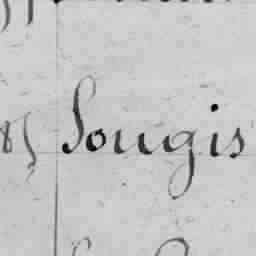 85 Sougis